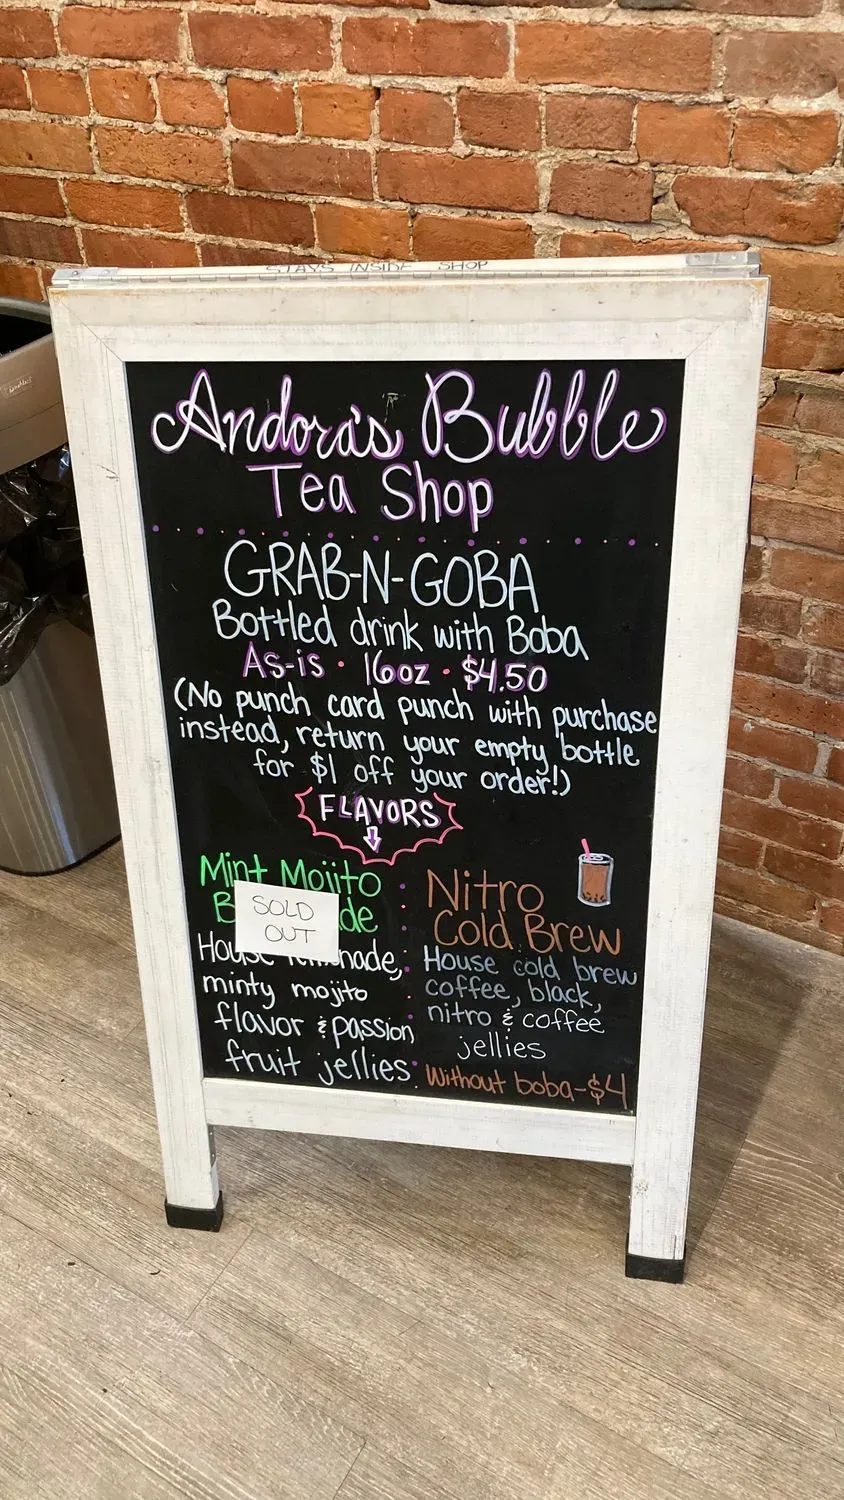 STAYS INSIDE SHOP
Andora's Bubble
Tea Shop
GRAB-N-GOBA
Bottled drink with Boba
As-is • 16oz • $4.50
(No punch card punch with purchase
instead, return your empty bottle
for $1 off your order!)
FLAVORS
Mint Mojito
SOLD
OUT
House
minty mojito
flavor & passion
fruit jellies.
Nitro
Cold Brew
House cold brew
coffee, black,
nitro & coffee
jellies
Without boba-$4